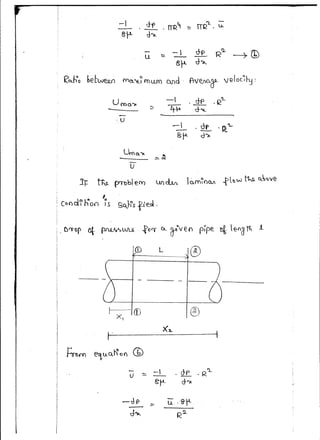 -1/8μ . dp/dx . πR⁴ = πR² . ū
ū = -1/8μ dp/dx R² → ⓑ
Ratio between maximum and Average velocity:
Umax/Ū = -1/4μ . dp/dx . R² / -1/8μ . dp/dx . R²
Umax/Ū = 2
If the problem under laminar flow the above
condition is satisfied.
Drop of pressure for a given pipe of length L
① L ②
X₁ ① ②
X₂
From equation ⓑ
Ū = -1/8μ . dp/dx . R²
-dp/dx = ū . 8μ/R²